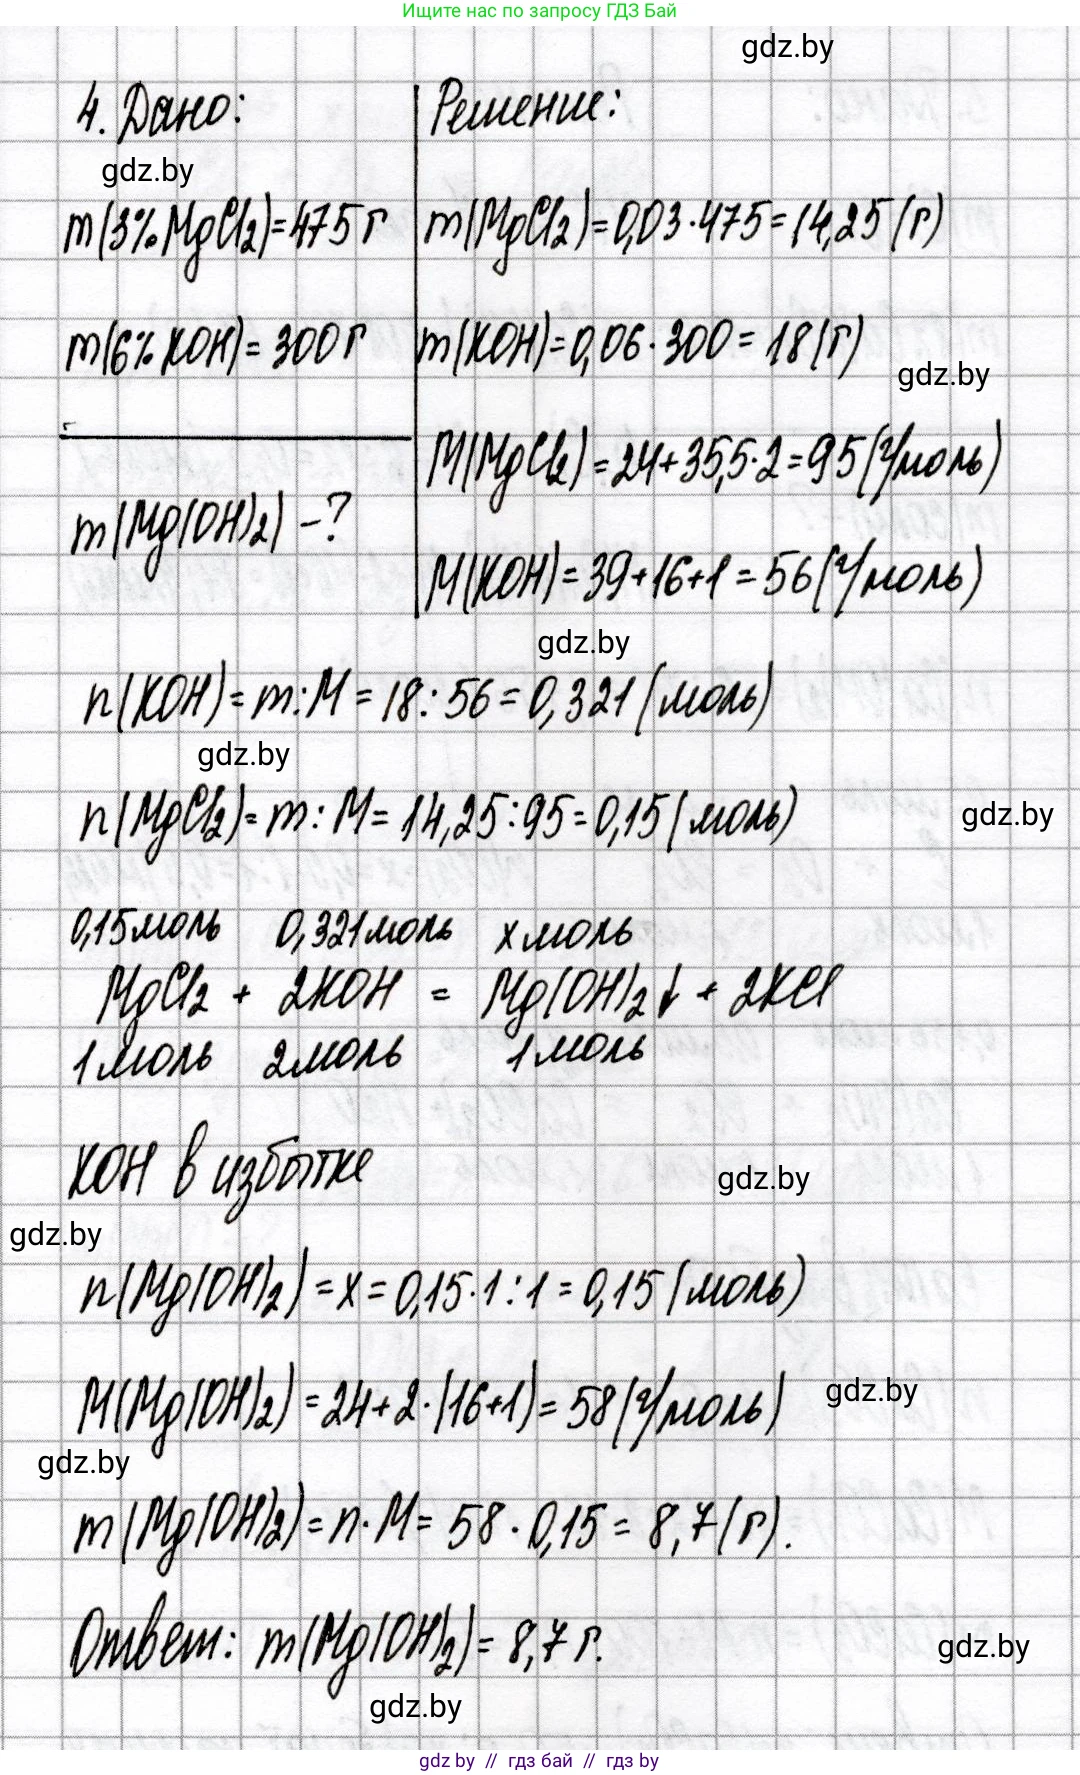 Ищите нас по запросу ГДЗ Бай
gdz.by
4. Дано:
Решение:
gdz.by
m(3% MgCl₂)=475 г
m(MgCl₂)=0,03·475=14,25 (г)
m(6% KOH)=300 г
m(KOH)=0,06·300=18(г)
gdz.by
M(MgCl₂)=24+35,5·2=95(г/моль)
m(Mg(OH)₂) -?
M(KOH)=39+16+1=56(г/моль)
gdz.by
n(KOH)=m:M=18:56=0,321 (моль)
gdz.by
n(MgCl₂)=m:M=14,25:95=0,15(моль)
gdz.by
0,15моль 0,321моль x моль
MgCl₂ + 2KOH = Mg(OH)₂↓ + 2KCl
1 моль 2моль 1 моль
KOH в избытке
gdz.by
gdz.by
n(Mg(OH)₂)=x=0,15·1:1=0,15(моль)
M(Mg(OH)₂)=24+2·(16+1)=58(г/моль)
gdz.by
gdz.by
m(Mg(OH)₂)=n·M=58·0,15=8,7(г).
Ответ: m(Mg(OH)₂)=8,7 г.
gdz.by
gdz.by
gdz.by // гдз бай // гдз by